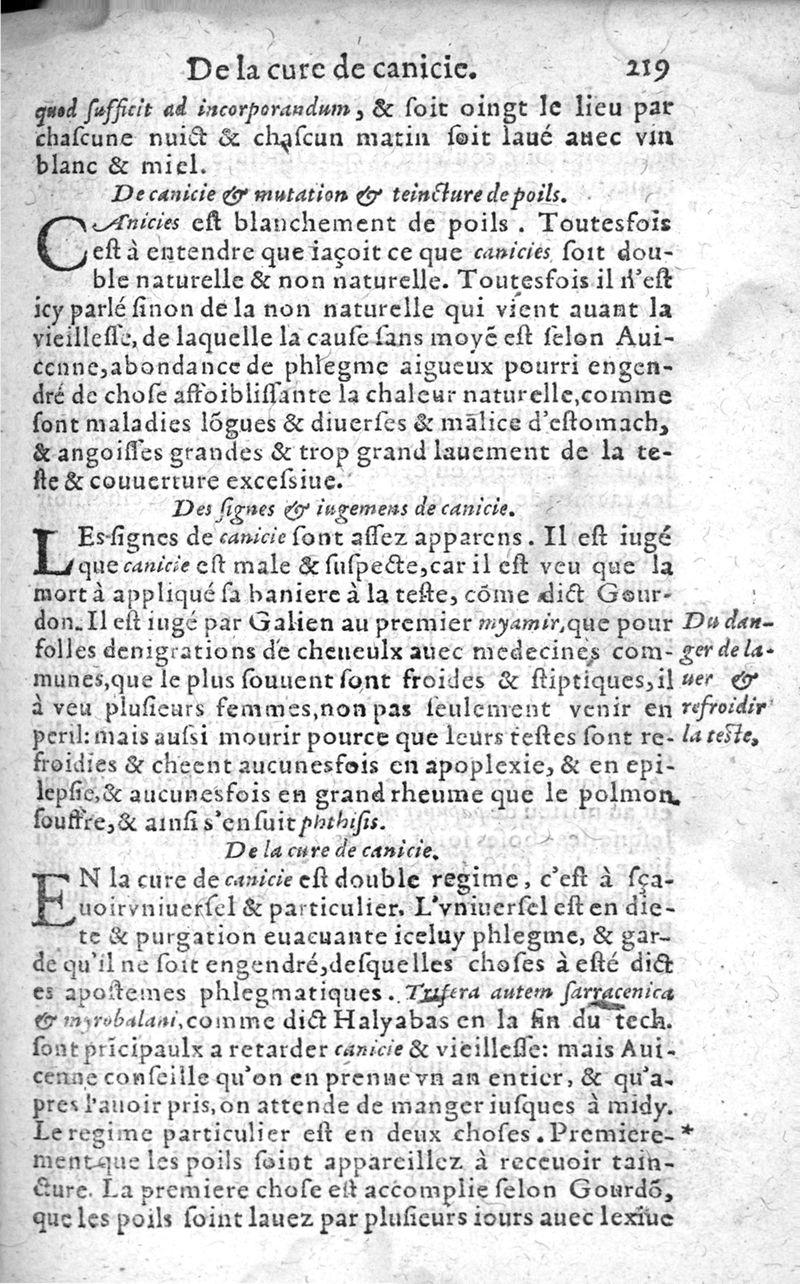 De la cure de canicie. 219
quod ſufficit ad incorporandum, & ſoit oingt le lieu par
chaſcune nuict & chaſcun matin ſoit laué auec vin
blanc & miel.
De canicie & mutation & teincture de poils.
CAnicies eſt blanchement de poils . Toutesfois
eſt à entendre que iaçoit ce que canicies ſoit dou-
ble naturelle & non naturelle. Toutesfois il n'eſt
icy parlé ſinon de la non naturelle qui vient auant la
vieilleſſe, de laquelle la cauſe ſans moyẽ eſt ſelon Aui-
cenne,abondance de phlegme aigueux pourri engen-
dré de choſe affoibliſſante la chaleur naturelle,comme
ſont maladies lõgues & diuerſes & malice d'eſtomach,
& angoiſſes grandes & trop grand lauement de la te-
ſte & couuerture exceſsiue.
Des ſignes & iugemens de canicie.
LEs ſignes de canicie ſont aſſez apparens . Il eſt iugé
que canicie eſt male & ſuſpecte,car il eſt veu que la
mort à appliqué ſa baniere à la teſte, cõme dict Gour-
don. Il eſt iugé par Galien au premier myamir,que pour
folles denigrations de cheueulx auec medecines com-
munes,que le plus ſouuent ſont froides & ſtiptiques,il
à veu pluſieurs femmes,non pas ſeulement venir en
peril: mais auſsi mourir pource que leurs teſtes ſont re-
froidies & cheent aucunesfois en apoplexie, & en epi-
lepſie,& aucunesfois en grand rheume que le polmon
ſouffre,& ainſi s'enſuit phthiſis.
Du dan-
ger de la-
uer &
refroidir
la teſte,
De la cure de canicie.
EN la cure de canicie eſt double regime, c'eſt à ſça-
uoir vniuerſel & particulier. L'vniuerſel eſt en die-
te & purgation euacuante iceluy phlegme, & gar-
de qu'il ne ſoit engendré,deſquelles choſes à eſté dict
es apoſtemes phlegmatiques . Trifera autem ſarracenica
& myrobalani,comme dict Halyabas en la fin du tech.
ſont prĩcipaulx a retarder canicie & vieilleſſe: mais Aui-
cenne conſeille qu'on en prenne vn an entier, & qu'a-
pres l'auoir pris, on attende de manger iuſques à midy.
Le regime particulier eſt en deux choſes . Premiere- *
ment que les poils ſoint appareillez à receuoir tain-
cture. La premiere choſe eſt accomplie ſelon Gourdõ,
que les poils ſoint lauez par pluſieurs iours auec lexiue